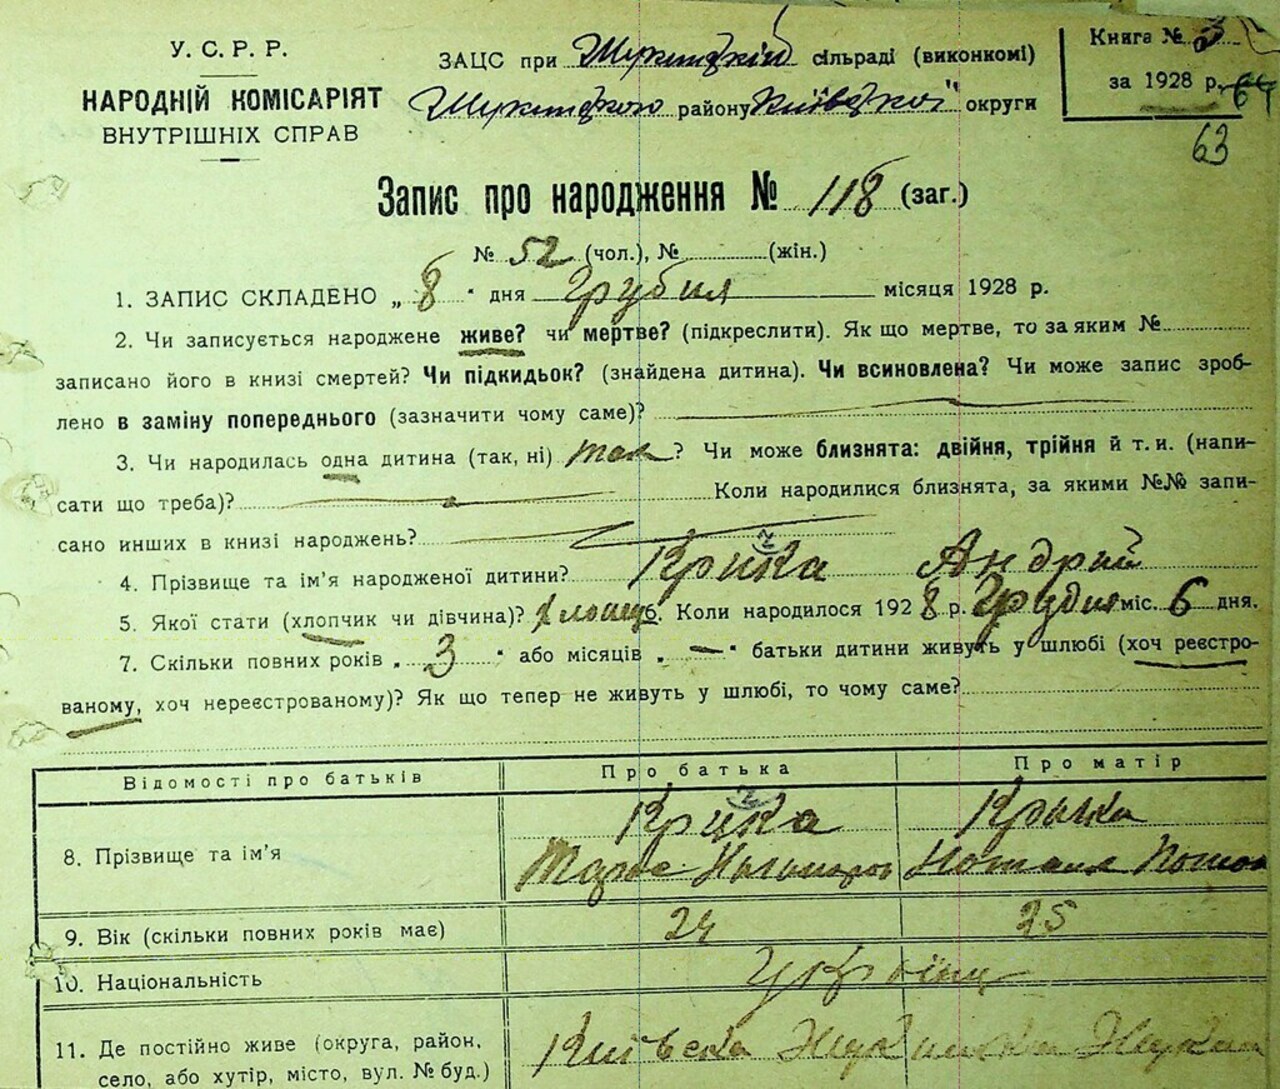 У. С. Р. Р.
НАРОДНІЙ КОМІСАРІЯТ
ВНУТРІШНІХ СПРАВ
ЗАЦС при сільраді (виконкомі)
району Київської округи
Книга №
за 1928 р. 64
63
Запис про народження № 118 (заг.)
№ 52 (чол.), № (жін.)
1. ЗАПИС СКЛАДЕНО „ 8 " дня Грудня місяця 1928 р.
2. Чи записується народжене живе? чи мертве? (підкреслити). Як що мертве, то за яким №
записано його в книзі смертей? Чи підкидьок? (знайдена дитина). Чи всиновлена? Чи може запис зроб-
лено в заміну попереднього (зазначити чому саме)?
3. Чи народилась одна дитина (так, ні) так ? Чи може близнята: двійня, трійня й т. и. (напи-
сати що треба)? Коли народилися близнята, за якими №№ запи-
сано инших в книзі народжень?
4. Прізвище та ім'я народженої дитини? Андрій
5. Якої стати (хлопчик чи дівчина)? хлопц 6. Коли народилося 1928 р. Грудня міс. 6 дня.
7. Скільки повних років „ 3 " або місяців „ — " батьки дитини живуть у шлюбі (хоч реєстро-
ваному, хоч нереєстрованому)? Як що тепер не живуть у шлюбі, то чому саме?
Відомості про батьків Про батька Про матір
8. Прізвище та ім'я Тарас
9. Вік (скільки повних років має) 24 25
10. Національність
11. Де постійно живе (округа, район, Київська
село, або хутір, місто, вул. № буд.)